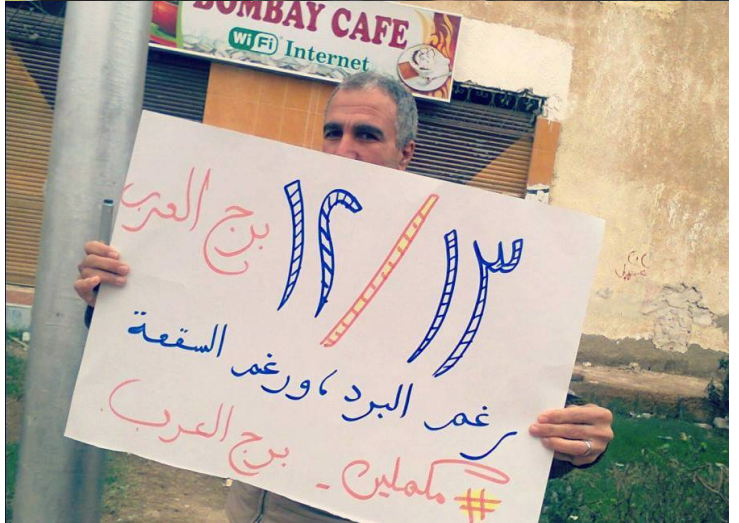 BOMBAY CAFE
WiFi Internet
١٢/١٣ برج العرب
رغم البرد، ورغم السقعة
#مكملين - برج العرب